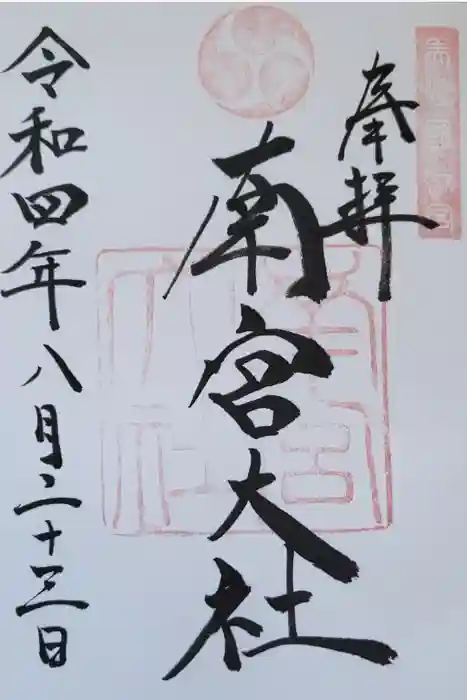 奉拝
南宮大社
南宮大社
令和四年八月二十三日